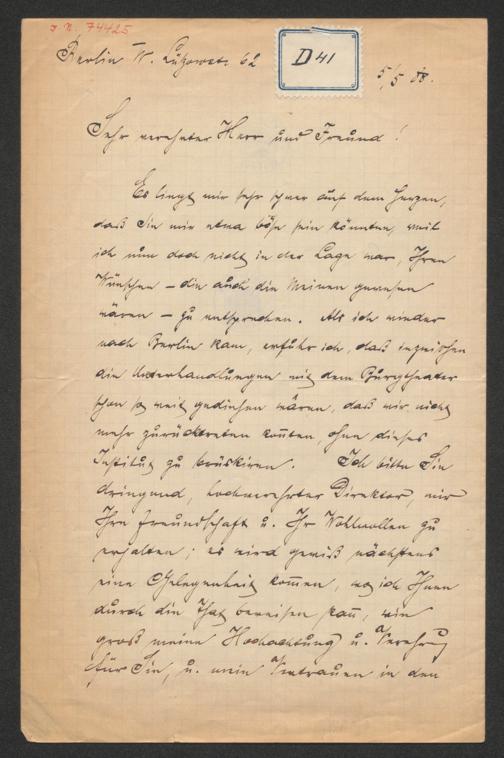 I. N. 74425
Berlin W. Lützowstr. 62
D 41
5/5 08.
Sehr verehrter Herr und Freund!
Es liegt mir sehr schwer auf dem Herzen,
daß Sie mir etwa böse sein könnten, weil
ich nun doch nicht in der Lage war, Ihren
Wünschen – die auch die Meinen gewesen
wären – zu entsprechen. Als ich wieder
nach Berlin kam, erfuhr ich, daß inzwischen
die Unterhandlungen mit dem Burgtheater
schon so weit gediehen wären, daß wir nicht
mehr zurücktreten koñten, ohne dieses
Institut zu brüskiren. Ich bitte Sie
dringend, hochverehrter Direktor, mir
Ihre Freundschaft u. Ihr Wohlwollen zu
erhalten; es wird gewiß nächstens
eine Gelegenheit kom̄en, wo ich Ihnen
durch die That beweisen kañ, wie
groß meine Hochachtung u. Verehrung
für Sie, u. mein Vertrauen in den